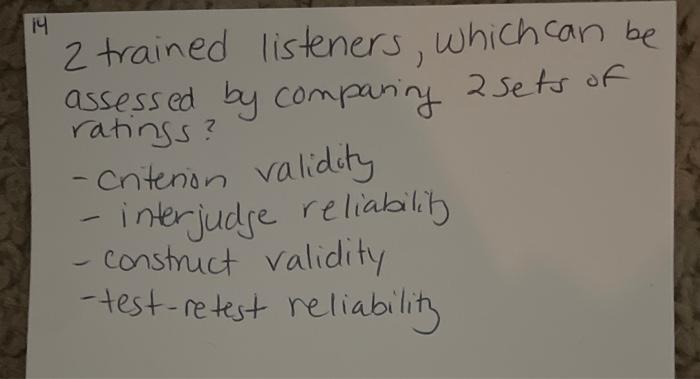 14
2 trained listeners, which can be
assessed by comparing 2 sets of
ratings?
- criterion validity
- interjudge reliability
- construct validity
- test-retest reliability